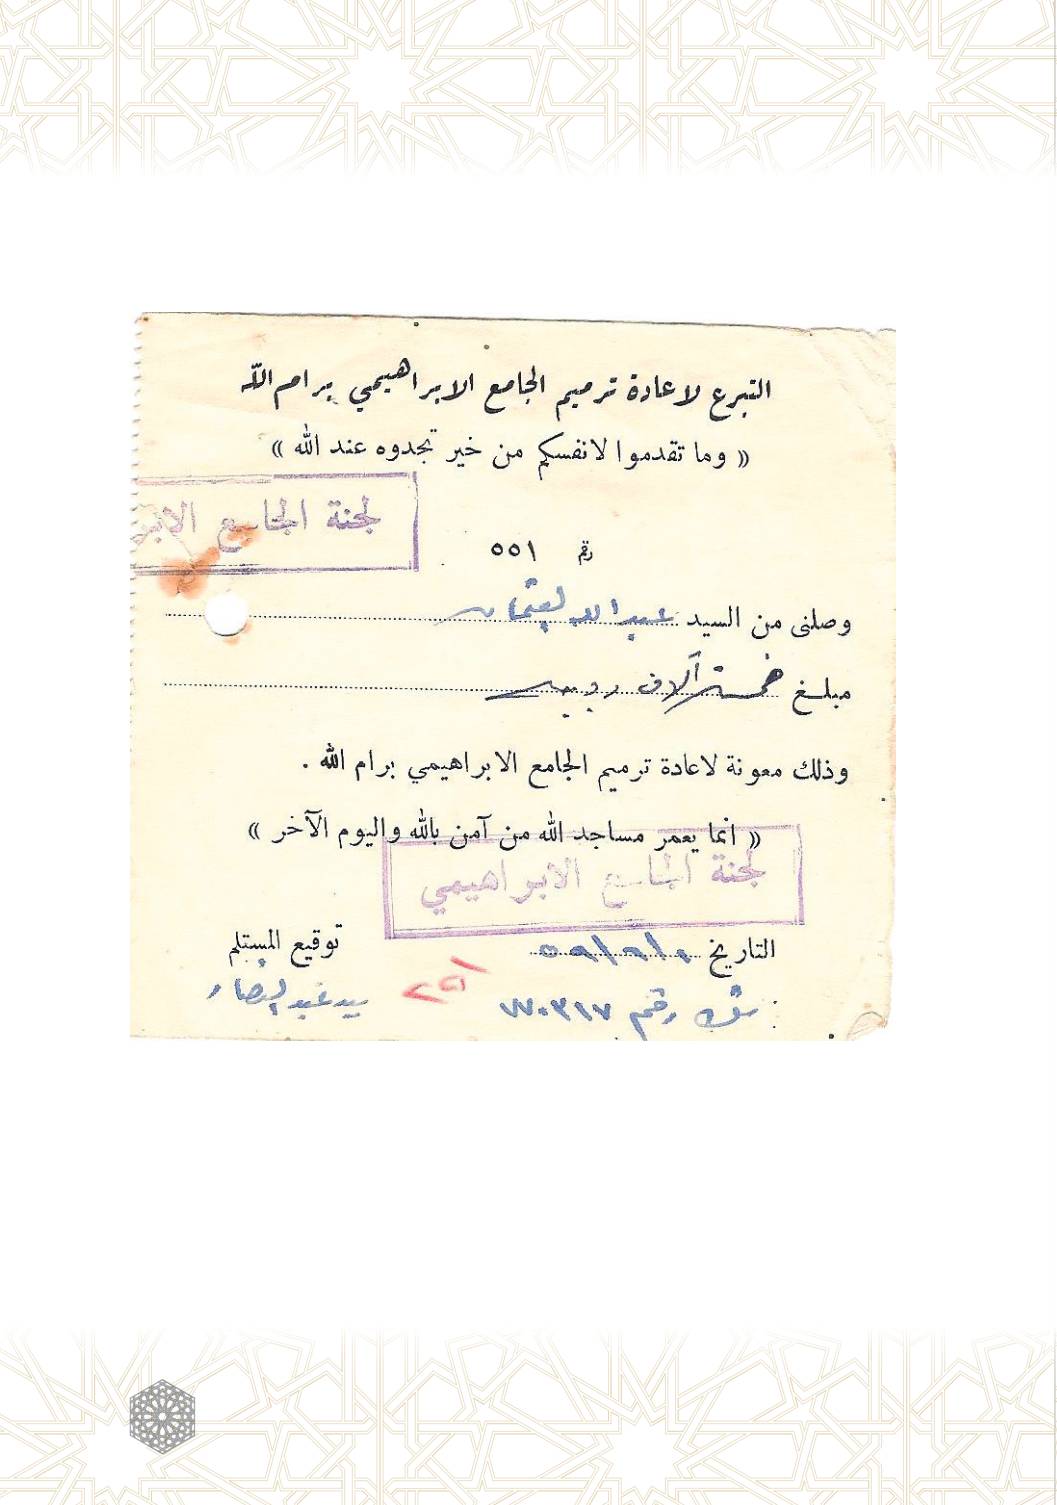 التبرع لاعادة ترميم الجامع الابراهيمي برام الله
« وما تقدموا لانفسكم من خير تجدوه عند الله »
لجنة الجامع الابر
رقم ٥٥١
وصلنى من السيد عبدالله العثمان
مبلغ خمسة آلاف روبيه
وذلك معونة لاعادة ترميم الجامع الابراهيمي برام الله .
« انما يعمر مساجد الله من آمن بالله واليوم الآخر »
لجنة الجامع الابراهيمي
التاريخ
توقيع المستلم
شك رقم ٧٧٠٣١٧
سيد عبد